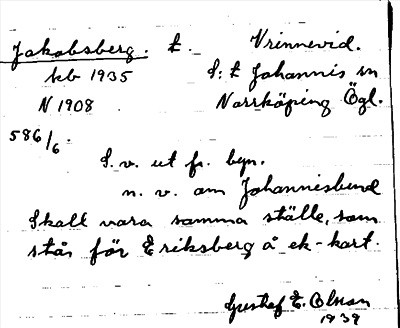 Jakobsberg. t. Vrinnevid.
kb 1935 S:t Johannis sn
N 1908 Norrköping Ögl.
586/6.
S. v. ut fr. byn.
n. v. om Johannisbund
Skall vara samma ställe, som
står för Eriksberg å ek-kart.
Gustef E. Olsson
1939